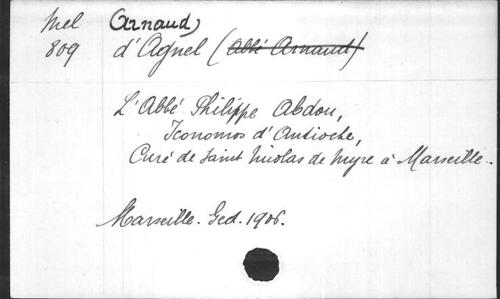 Mel (Arnaud)
809 d'Agnel (Abbé Arnaud)
L'Abbé Philippe Abdou,
Iconomos d'Antioche,
Curé de Saint Nicolas de Myre à Marseille.
Marseille. Ged. 1906.